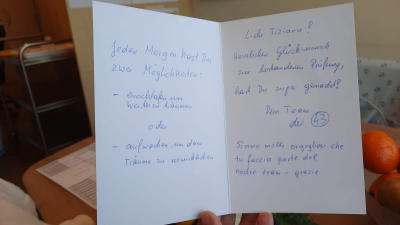 Jeden Morgen hast Du
zwei Möglichkeiten:
- einschlafen um
weiterzuträumen
oder
- aufwachen, um deine
Träume zu verwirklichen
Liebe Tiziana!
Herzlichen Glückwunsch
zur bestandenen Prüfung,
hast Du super gemacht!
Dein Team
der 43
Siamo molto orgogliosi che
tu faccia parte del
nostro team - grazie